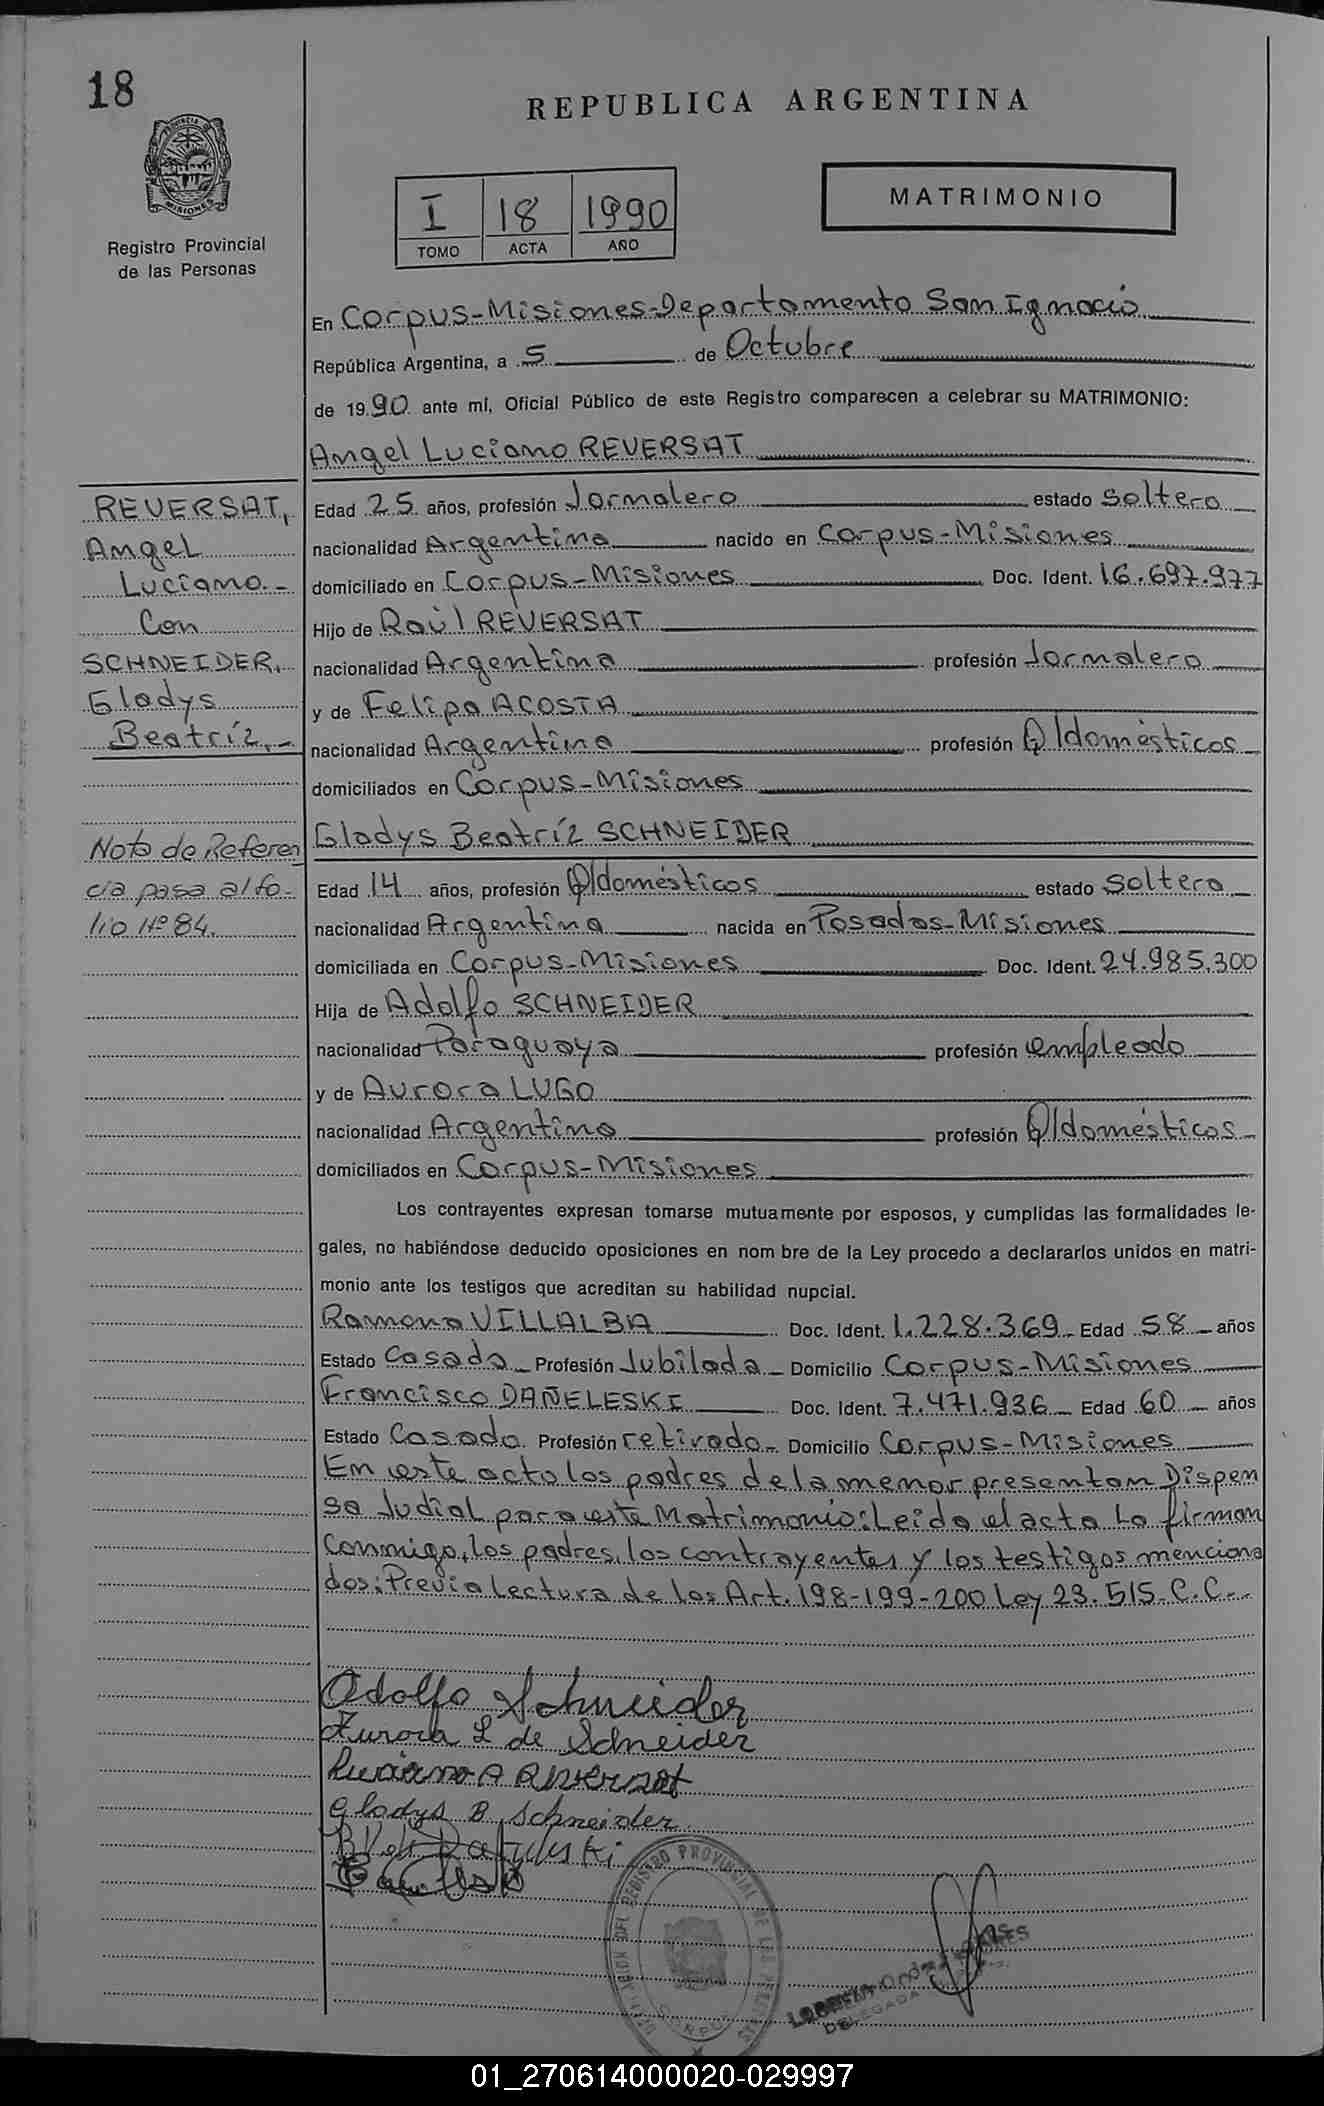 18
REPUBLICA ARGENTINA
MISIONES
Registro Provincial
de las Personas
I 18 1990
TOMO ACTA AÑO
MATRIMONIO
En Corpus-Misiones-Departamento San Ignacio
República Argentina, a 5 de Octubre
de 1990 ante mí, Oficial Público de este Registro comparecen a celebrar su MATRIMONIO:
Angel Luciano REVERSAT
REVERSAT,
Angel
Luciano.-
Con
SCHNEIDER,
Gladys
Beatríz.-
Nota de Referen
cia pasa al fo-
lio Nº 84.
Edad 25 años, profesión Jornalero estado Soltero
nacionalidad Argentina nacido en Corpus-Misiones
domiciliado en Corpus-Misiones Doc. Ident. 16.697.977
Hijo de Raúl REVERSAT
nacionalidad Argentina profesión Jornalero
y de Felipa ACOSTA
nacionalidad Argentina profesión Q/domésticos
domiciliados en Corpus-Misiones
Gladys Beatríz SCHNEIDER
Edad 14 años, profesión Q/domésticos estado Soltera
nacionalidad Argentina nacida en Posadas-Misiones
domiciliada en Corpus-Misiones Doc. Ident. 24.985.300
Hija de Adolfo SCHNEIDER
nacionalidad Paraguaya profesión empleado
y de Aurora LUGO
nacionalidad Argentina profesión Q/domésticos
domiciliados en Corpus-Misiones
Los contrayentes expresan tomarse mutuamente por esposos, y cumplidas las formalidades le-
gales, no habiéndose deducido oposiciones en nom bre de la Ley procedo a declararlos unidos en matri-
monio ante los testigos que acreditan su habilidad nupcial.
Ramona VILLALBA Doc. Ident. 1.228.369 Edad 58 años
Estado Casada Profesión Jubilada Domicilio Corpus-Misiones
Francisco DAÑELESKI Doc. Ident. 7.471.936 Edad 60 años
Estado Casado Profesión retirado Domicilio Corpus-Misiones
En este acto los padres de la menor presentan Dispen
sa Judial para este Matrimonio: Leida el acta La firman
Conmigo, los padres, los contrayentes y los testigos menciona
dos: Previa Lectura de los Art. 198-199-200 Ley 23.515. C.C.-
Adolfo Schneider
Aurora L de Schneider
Luciano A Reversat
Gladys B Schneider
REGISTRO PROVINCIAL DE LAS PERSONAS
CORPUS
DELEGADA
01_270614000020-029997